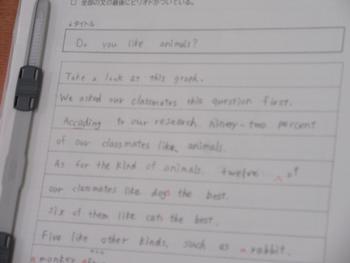 全部の文の最後にピリオドがついている。
タイトル
Do you like animals?
Take a look at this graph.
We asked our classmates this question first.
Accoding to our research ninety-two percent
of our classmates like animals.
As for the kind of animals. twelve of
our classmates like dogs the best.
six of them like cats the best.
Five like other kinds, such as a rabbit.
a monkey